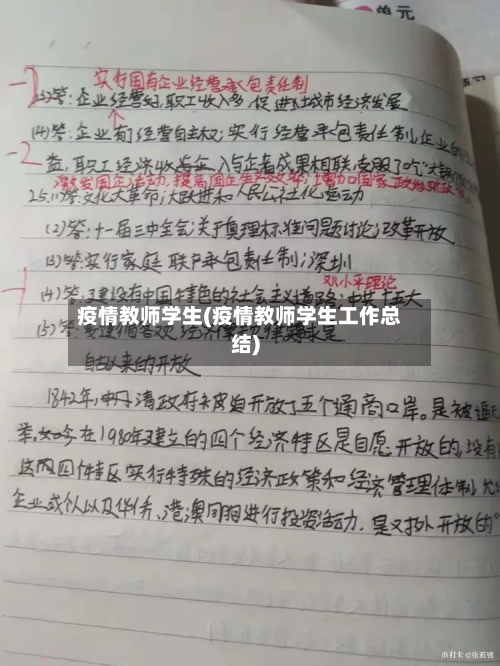 单元
实行国有企业经营承包责任制
(3)答:企业经营好,职工收入多,促进了城市经济发展
(4)答:企业有了经营自主权;实行经营承包责任制,企业
-2
益,职工经济收益
入与企业成果相联,克服了吃"大锅
激发国企活动,提高国企生产效率;增加国家政府财政
25.(1)答:文化大革命;大跃进和人民公社化运动
(2)答:十一届三中全会;关于真理标准问题讨论;改革开放
(3)答:实行家庭联产承包责任制;深圳
邓小平理论
-1
(4)答:建设有中国特色的社会主义道路;中共十五大
疫情教师学生(疫情教师学生工作总
结)
(5)答:要遵循客观经济
自古以来的开放
1842年,清政府被迫开放了五个通商口岸。是被
举,如今在1980年建立的四个经济特区是自愿开放的,没有
这四个特区实行特殊的经济政策和经济管理体制,
企业或个人以及华侨、港澳同胞进行投资活动,是对外开放的"
小打卡@张若锦